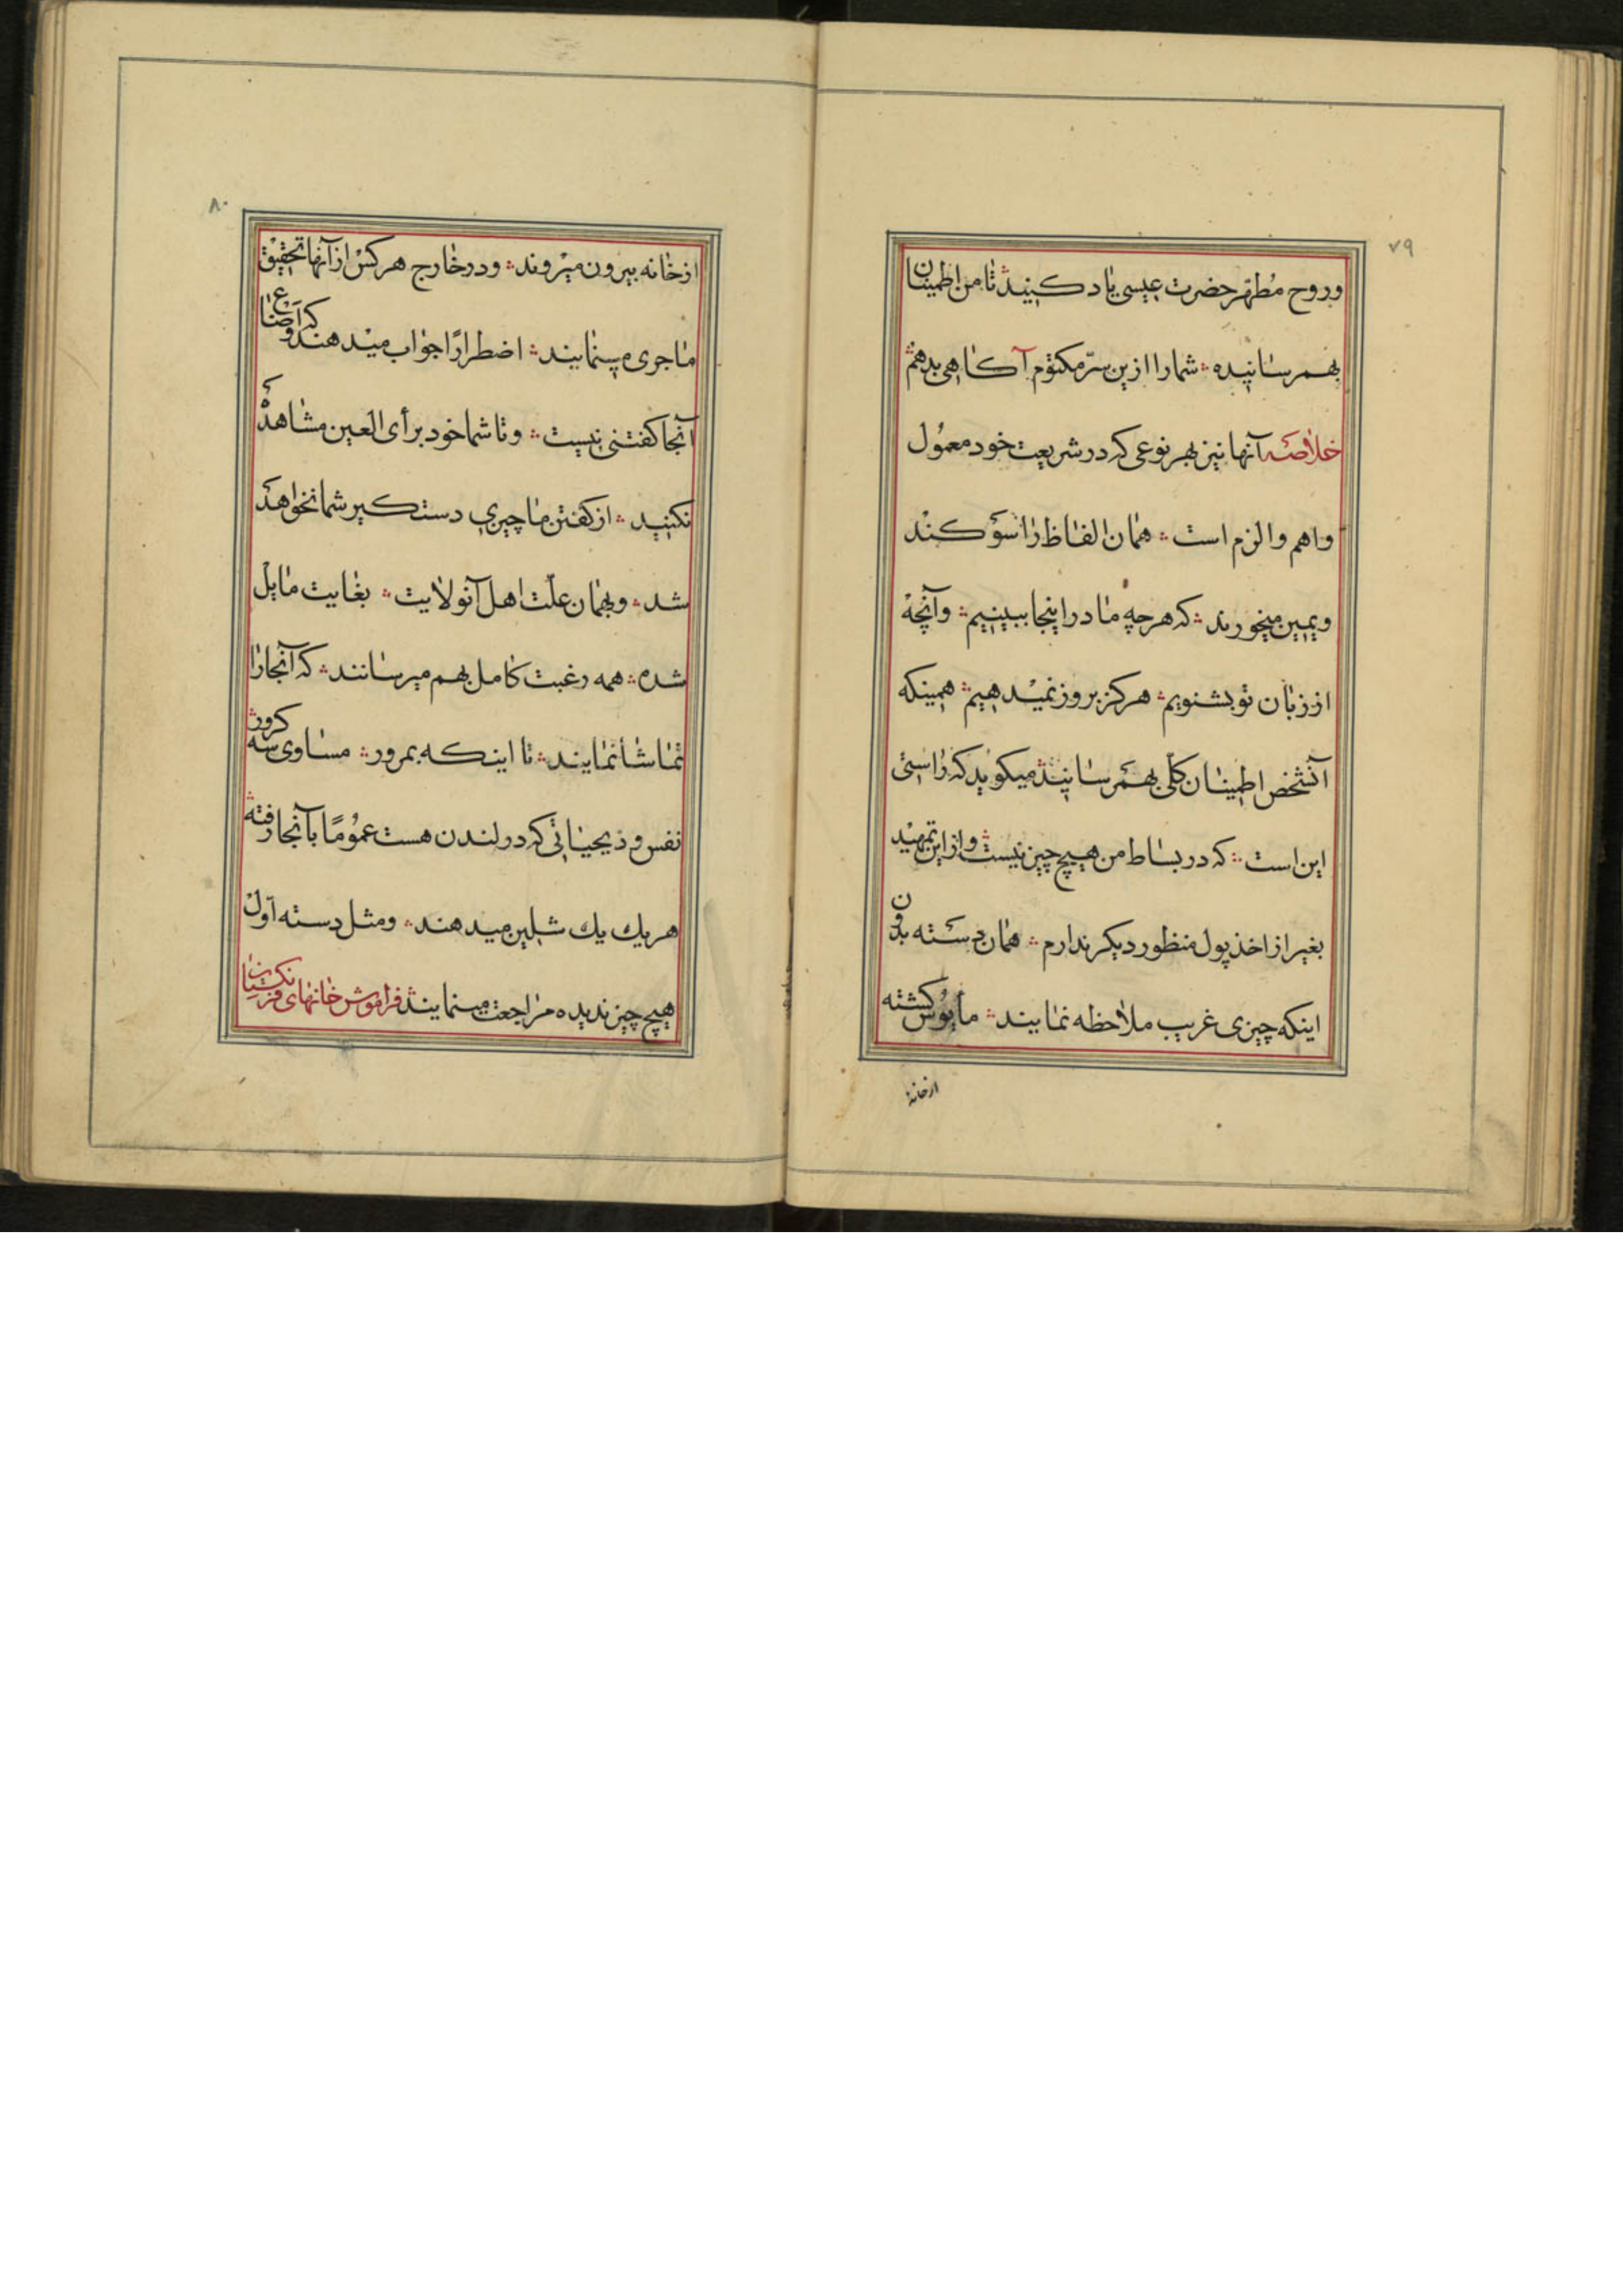 ۷۹
وروح مُطهّر حضرت عیسی یاد کنید تا من اطمینان
بهمرسانیده شما را ازین سرّ مکتوم آکاهی بدهم
خلاصه آنها نیز بهر نوعی که در شریعت خود معمول
واهم والزم است همان الفاظ را سوکند
ویمین میخورند که هرچه ما در اینجا ببینیم وآنچه
از زبان تو بشنویم هرکز بروز نمیدهیم همینکه
آنشخص اطمینان کلّی بهمرسانید میکوید که راستی
این است که در بساط من هیچ چیز نیست واز این تمهید
بغیر از اخذ پول منظور دیکر ندارم همان دسته بدون
اینکه چیزی غریب ملاحظه نمایند مأیوس کشته
ازخانه
۸۰
ازخانه بیرون میروند ودر خارج هرکس از آنها تحقیق
ماجری مینمایند اضطرارًا جواب میدهند که اوضاع
آنجا کفتنی نیست وتا شما خود برأی العین مشاهده
نکنید از کفتن ما چیزی دستکیر شما نخواهد
شد وبهمان علّت اهل آنولایت بغایت مایل
شده همه رغبت کامل بهم میرسانند که آنجا را
تماشا نمایند تا اینکه بمرور مساوی سه کرور
نفس و ذیحیاتی که در لندن هست عمومًا بآنجا رفته
هریك یك شلین میدهند ومثل دسته اوّل
هیچ چیز ندیده مراجعت مینمایند فراموش خانهای فرنکستان